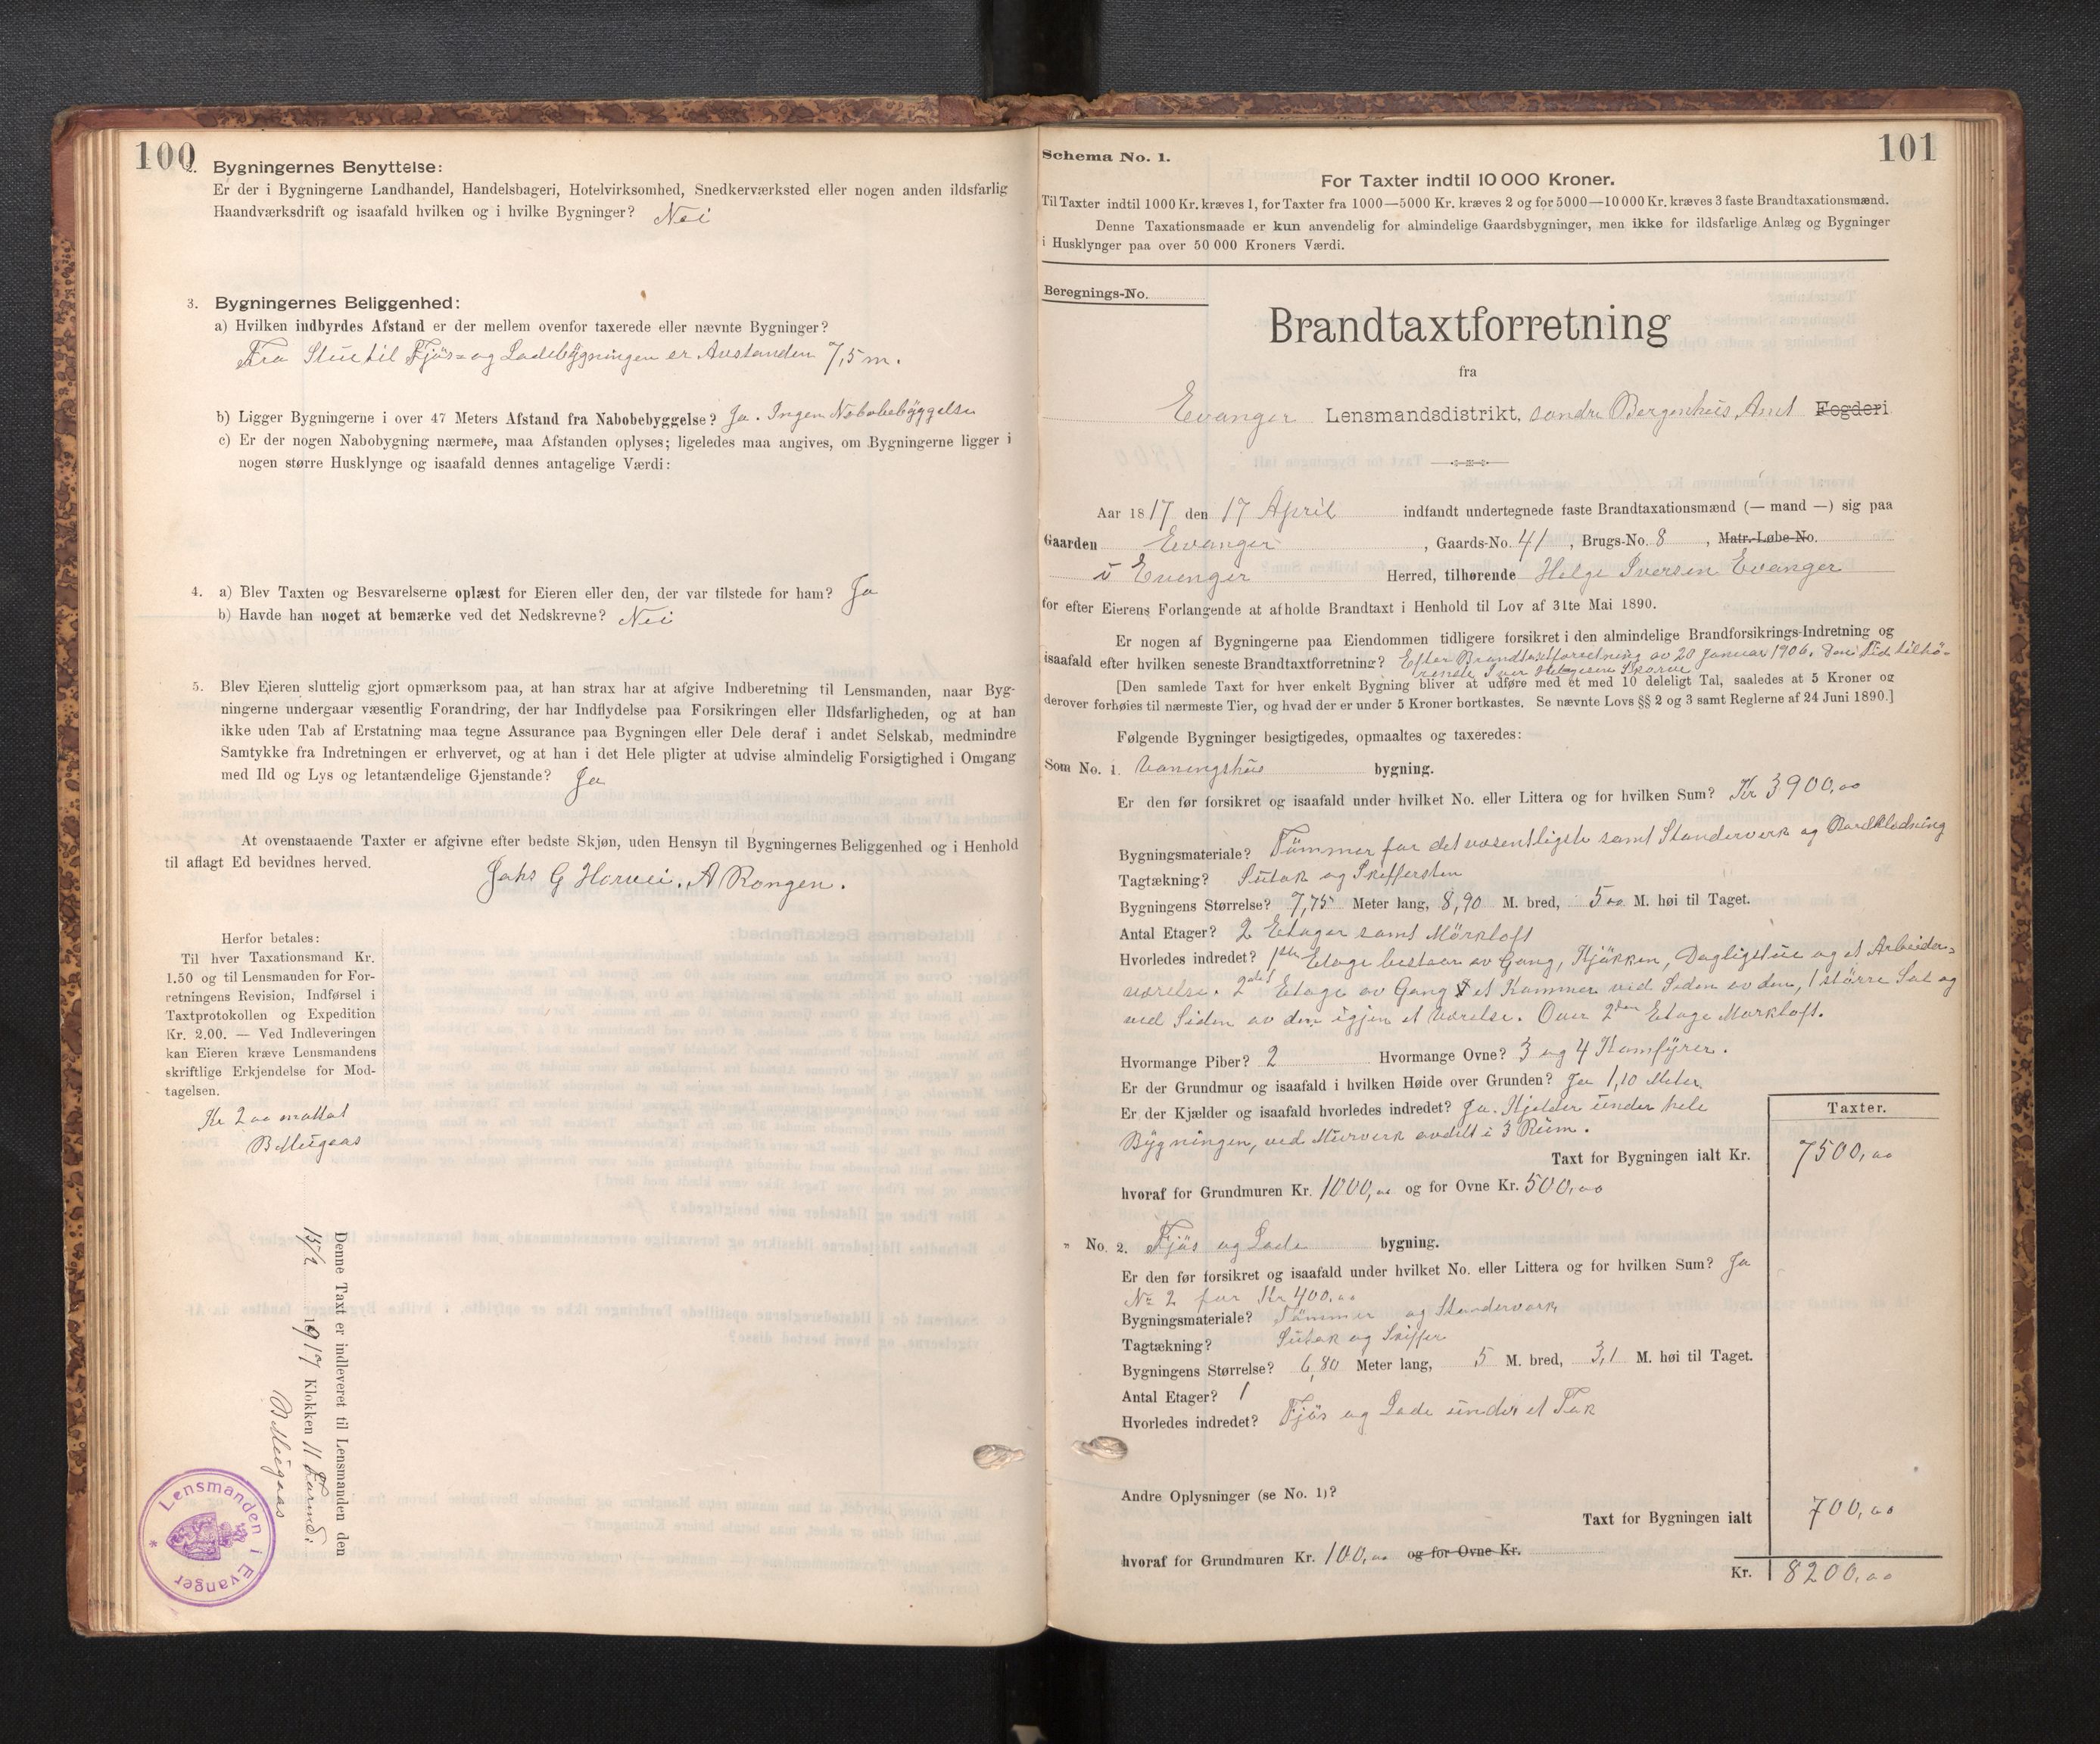 100
2. Bygningernes Benyttelse:
Er der i Bygningerne Landhandel, Handelsbageri, Hotelvirksomhed, Snedkerværksted eller nogen anden ildsfarlig
Haandværksdrift og isaafald hvilken og i hvilke Bygninger? Nei
3. Bygningernes Beliggenhed:
a) Hvilken indbyrdes Afstand er der mellem ovenfor taxerede eller nævnte Bygninger?
Fra Stue til Fjös- og Ladebygningen er Avstanden 7,5 m.
b) Ligger Bygningerne i over 47 Meters Afstand fra Nabobebyggelse? Ja. Ingen Nabobebyggelse
c) Er der nogen Nabobygning nærmere, maa Afstanden oplyses; ligeledes maa angives, om Bygningerne ligger i
nogen større Husklynge og isaafald dennes antagelige Værdi:
4. a) Blev Taxten og Besvarelserne oplæst for Eieren eller den, der var tilstede for ham? Ja
b) Havde han noget at bemærke ved det Nedskrevne? Nei
5. Blev Eieren sluttelig gjort opmærksom paa, at han strax har at afgive Indberetning til Lensmanden, naar Byg-
ningerne undergaar væsentlig Forandring, der har Indflydelse paa Forsikringen eller Ildsfarligheden, og at han
ikke uden Tab af Erstatning maa tegne Assurance paa Bygningen eller Dele deraf i andet Selskab, medmindre
Samtykke fra Indretningen er erhvervet, og at han i det Hele pligter at udvise almindelig Forsigtighed i Omgang
med Ild og Lys og letantændelige Gjenstande? Ja
At ovenstaaende Taxter er afgivne efter bedste Skjøn, uden Hensyn til Bygningernes Beliggenhed og i Henhold
til aflagt Ed bevidnes herved.
Johs G Horvei. A Rongen.
Herfor betales:
Til hver Taxationsmand Kr.
1.50 og til Lensmanden for For-
retningens Revision, Indførsel i
Taxtprotokollen og Expedition
Kr. 2.00. — Ved Indleveringen
kan Eieren kræve Lensmandens
skriftlige Erkjendelse for Mod-
tagelsen.
Kr 2 00 mottat
Denne Taxt er indleveret til Lensmanden den
1917 Klokken 11 Formd:
Lensmanden i Evanger
101
Schema No. 1.
For Taxter indtil 10 000 Kroner.
Til Taxter indtil 1000 Kr. kræves 1, for Taxter fra 1000—5000 Kr. kræves 2 og for 5000—10 000 Kr. kræves 3 faste Brandtaxationsmænd.
Denne Taxationsmaade er kun anvendelig for almindelige Gaardsbygninger, men ikke for ildsfarlige Anlæg og Bygninger
i Husklynger paa over 50 000 Kroners Værdi.
Beregnings-No.
Brandtaxtforretning
fra
Evanger Lensmandsdistrikt, søndre Bergenhus Amt Fogderi
Aar 1817 den 17 April indfandt undertegnede faste Brandtaxationsmænd (— mand —) sig paa
Gaarden Evanger, Gaards-No. 41, Brugs-No. 8, Matr.-Løbe-No.
i Evanger Herred, tilhørende Helge Iversen Evanger
for efter Eierens Forlangende at afholde Brandtaxt i Henhold til Lov af 31te Mai 1890.
Er nogen af Bygningerne paa Eiendommen tidligere forsikret i den almindelige Brandforsikrings-Indretning og
isaafald efter hvilken seneste Brandtaxtforretning? Efter Brandtaxtforretning av 20 Januar 1906. Den Tid tilhö-
rende Iver Helgesen Skorve
[Den samlede Taxt for hver enkelt Bygning bliver at udføre med et med 10 deleligt Tal, saaledes at 5 Kroner og
derover forhøies til nærmeste Tier, og hvad der er under 5 Kroner bortkastes. Se nævnte Lovs §§ 2 og 3 samt Reglerne af 24 Juni 1890.]
Følgende Bygninger besigtigedes, opmaaltes og taxeredes:
Som No. 1. Vaaningshus bygning.
Er den før forsikret og isaafald under hvilket No. eller Littera og for hvilken Sum? Kr 3900,00
Bygningsmateriale? Tömmer for det væsentligste samt Standerverk og Bordklædning
Tagtækning? Sutak og Skiffersten
Bygningens Størrelse? 7,75 Meter lang, 8,90 M. bred, 5 00 M. høi til Taget.
Antal Etager? 2 Etager samt Mörkloft
Hvorledes indredet? 1ste Etage bestaar av Gang, Kjökken, Dagligstue og et Arbeider-
værelse. 2den Etage av Gang et Kammer ved Siden av den, 1 större Sal og
ved Siden av den igjen et Værelse. Over 2den Etage Mørkloft.
Hvormange Piber? 2 Hvormange Ovne? 3 og 4 Komfyrer.
Er der Grundmur og isaafald i hvilken Høide over Grunden? Ja 1,10 Meter
Er der Kjælder og isaafald hvorledes indredet? Ja. Kjelder under hele
Bygningen, ved Murverk avdelt i 3 Rum.
Taxter.
Taxt for Bygningen ialt Kr. 7500,00
hvoraf for Grundmuren Kr. 1000,00 og for Ovne Kr. 500,00
" No. 2. Fjös og Lade bygning.
Er den før forsikret og isaafald under hvilket No. eller Littera og for hvilken Sum? Ja
No 2 for Kr 400,00
Bygningsmateriale? Tömmer og Standerverk
Tagtækning? Sutak og Skiffer
Bygningens Størrelse? 6,80 Meter lang, 5 M. bred, 3,1 M. høi til Taget.
Antal Etager? 1
Hvorledes indredet? Fjös og Lade under et Tak
Andre Oplysninger (se No. 1)?
Taxt for Bygningen ialt 700,00
hvoraf for Grundmuren Kr. 100,00 og for Ovne Kr.
Kr. 8200,00